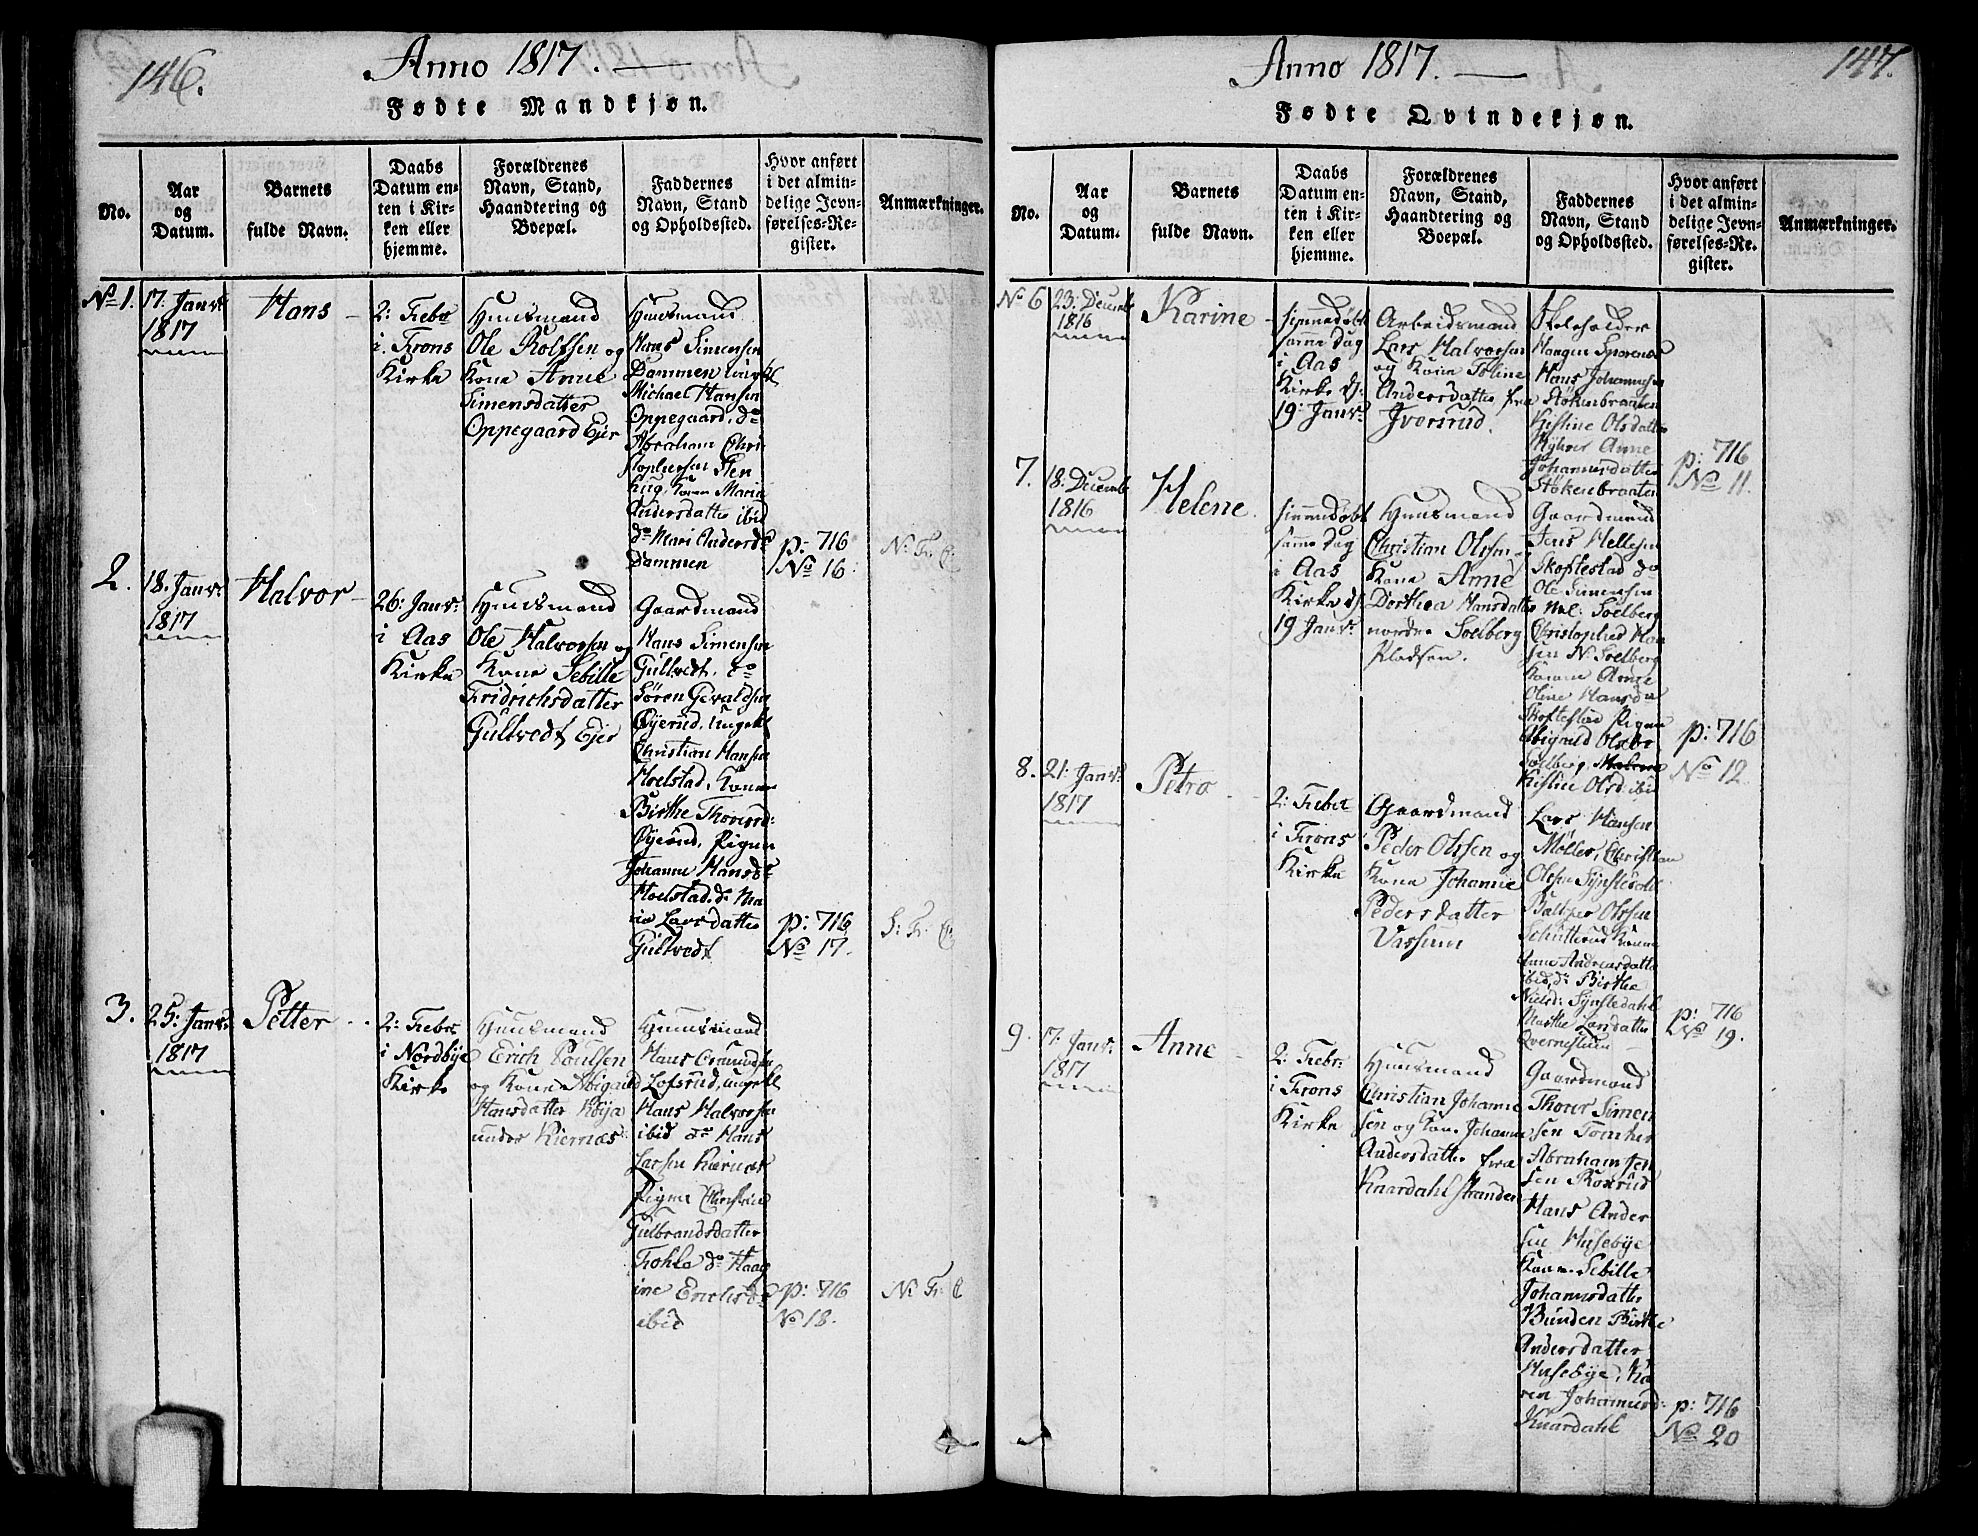 146.
Anno 1817.
Fødte Mandkjøn.
No.
Aar
og
Datum.
Barnets
fulde Navn.
Daabs
Datum en-
ten i Kir-
ken eller
hjemme.
Forældrenes
Navn, Stand,
Haandtering og
Boepæl.
Faddernes
Navn, Stand
og Opholdssted.
Hvor anført
i det almin-
delige Jevn-
førelses-Re-
gister.
Anmærkninger.
No 1.
17: Janvr:
1817
Hans
2: Febr
i Frons
Kirke
Huusmand
Ole Rolfsen og
Kone Anne
Simensdatter
Oppegaard Ejer
Huusmand
Hans Simensen
Dammen
Michael Hansen
Oppegaard, do
Abraham Chri-
stophersen
Marie
Andersdatter ibid
do Mari Andersd:
Dammen
p: 716
No 16.
N: Fr: E
2.
18. Janvr:
1817
Halvor
26: Janvr:
i Aas
Kirke
Huusmand
Ole Halvorsen og
Kone Sebille
Fridrichsdatter
Gultvedt Ejer
Gaardmand
Hans Simensen
Gultvedt, do
Søren Gevaldsen
Øyerud, Ungekl
Christian Hansen
Hoelstad, Kone
Birthe Thoresd:
Øyerud, Pigen
Johanne Hansd:
Hoelstad, do Ma-
rie Larsdatter
Gultvedt
p: 716
No 17.
S: Fr: E
3.
25: Janvr:
1817
Petter
2: Febr:
i Nordbye
Kirke
Huusmand
Erich Poulsen
og Kone Abigael
Hansdatter Røija
under Kiernæs
Huusmand
Hans Amundsen
Lofsrud, ungekl
Hans Halvorsen
ibid do Hans
Larsen Kærnæs
Pigen Christine
Gulbrandsdatter
Frohle do Haag
ine Erichsd:
ibid
p: 716
No 18.
N: Fr: E
147.
Anno 1817.
Fødte Qvindekjøn.
No.
Aar
og
Datum.
Barnets
fulde Navn.
Daabs
Datum en-
ten i Kir-
ken eller
hjemme.
Forældrenes
Navn, Stand,
Haandtering og
Boepæl.
Faddernes
Navn, Stand
og Opholdssted.
Hvor anført
i det almin-
delige Jevn-
førelses-Re-
gister.
Anmærkninger.
No 6
23: Decemb
1816
Karine
hjemmedøbt
samme dag
i Aas
Kirke d:
19: Janvr:
Arbeidsmand
Lars Halvorsen
og Kone Toline
Andersdatter fra
Iversrud.
Skoleholder
Haagen
Hans Johannesen
Støkenbraaten
Kistine Olsdatter
Anne
Johannesdatter
Støkenbraaten
p: 716
No 11.
7.
18: Decemb
1816
Helene
hjemmedøbt
samme dag
i Aas
Kirke d:
19 Janvr:
Huusmand
Christian Olssen,
Kone Anne
Dorthea Hansdatter
nordre Solberg
Pladsen.
Gaardmand
Jens Hellesen
Skoftestad do
Ole Simensen
Nol: Solberg
Christopher Han
sen N: Solberg
Konen Anne
Oline Hansd:
Skoftestad Pigen
Abigael Olsdr
Solberg,
Kistine Olsd: ibid
p: 716
No 12.
8.
21: Janvr:
1817
Petro
2: Febr
i Frons
Kirke
Gaardmand
Peder Olssen og
Kone Johanne
Pedersdatter
Vassum
Lars Hansen
Møller, Christian
Olsen Synstedahl
Baltzer Olssen
Schutterud Kone
Anne Andreasdatter
ibid, do Birthe
Nielsd: Synstedahl
Marthe Larsdatter
Qvernestuen
p: 716
No 19.
9.
17: Janvr:
1817
Anne
2: Febr:
i Frons
Kirke
Huusmand
Christian Johanne
sen og Kone Johanne
Andersdatter fra
Knardahl stranden
Gaardmand
Thorer Simen
sen Tomter
Abraham Jen
sen Roxrud
Hans Ander
sen Husebye
Konen Sebille
Johannesdatter
Bunden Birthe
Andersdatter
Husebye, Ka
ren Johannesd:
Knardahl
p: 716
No 20